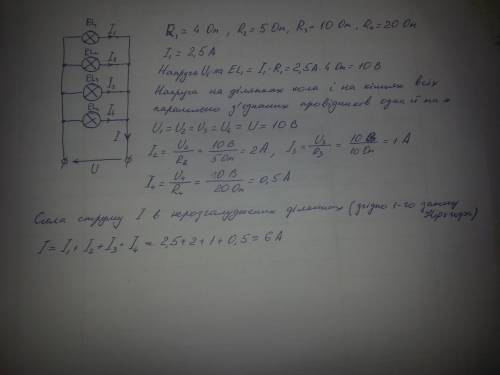 EL₁ I₁
EL₂ I₂
EL₃ I₃
EL₄ I₄
I
U
R₁ = 4 Ом, R₂ = 5 Ом, R₃ = 10 Ом, R₄ = 20 Ом
I₁ = 2,5 А
Напруга U₁ на EL₁ = I₁·R₁ = 2,5 А · 4 Ом = 10 В
Напруга на ділянках кола і на кінцях всіх
паралельно з'єднаних провідників одна й та ж
U₁ = U₂ = U₃ = U₄ = U = 10 В
I₂ = U₂/R₂ = 10 В/5 Ом = 2 А, I₃ = U₃/R₃ = 10 В/10 Ом = 1 А
I₄ = U₄/R₄ = 10 В/20 Ом = 0,5 А
Сила струму I в нерозгалужених ділянках (згідно 1-го закону
Кірхгофа)
I = I₁ + I₂ + I₃ + I₄ = 2,5 + 2 + 1 + 0,5 = 6 А